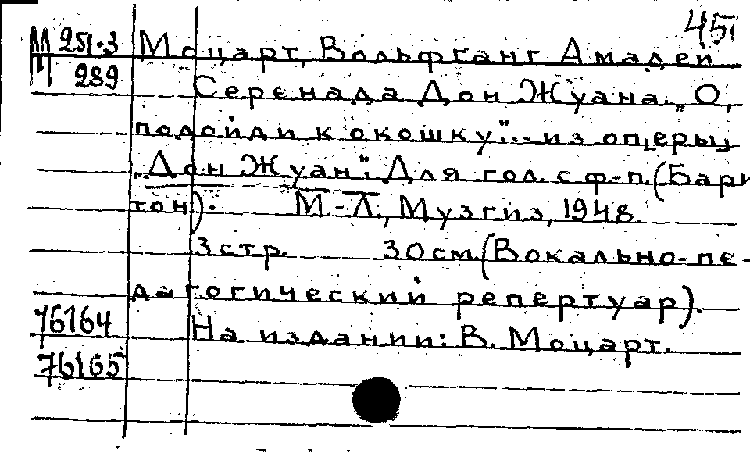 45
М 251.3 Моцарт, Вольфганг Амадей
289 Серенада Дон Жуана „О,
подойди к окошку"... из оперы
„Дон Жуан". Для гол. с ф-п. (Бари
тон). М-Л., Музгиз, 1948.
3 стр. 30 см (Вокально-пе-
дагогический репертуар).
76164 На издании: В. Моцарт.
76165